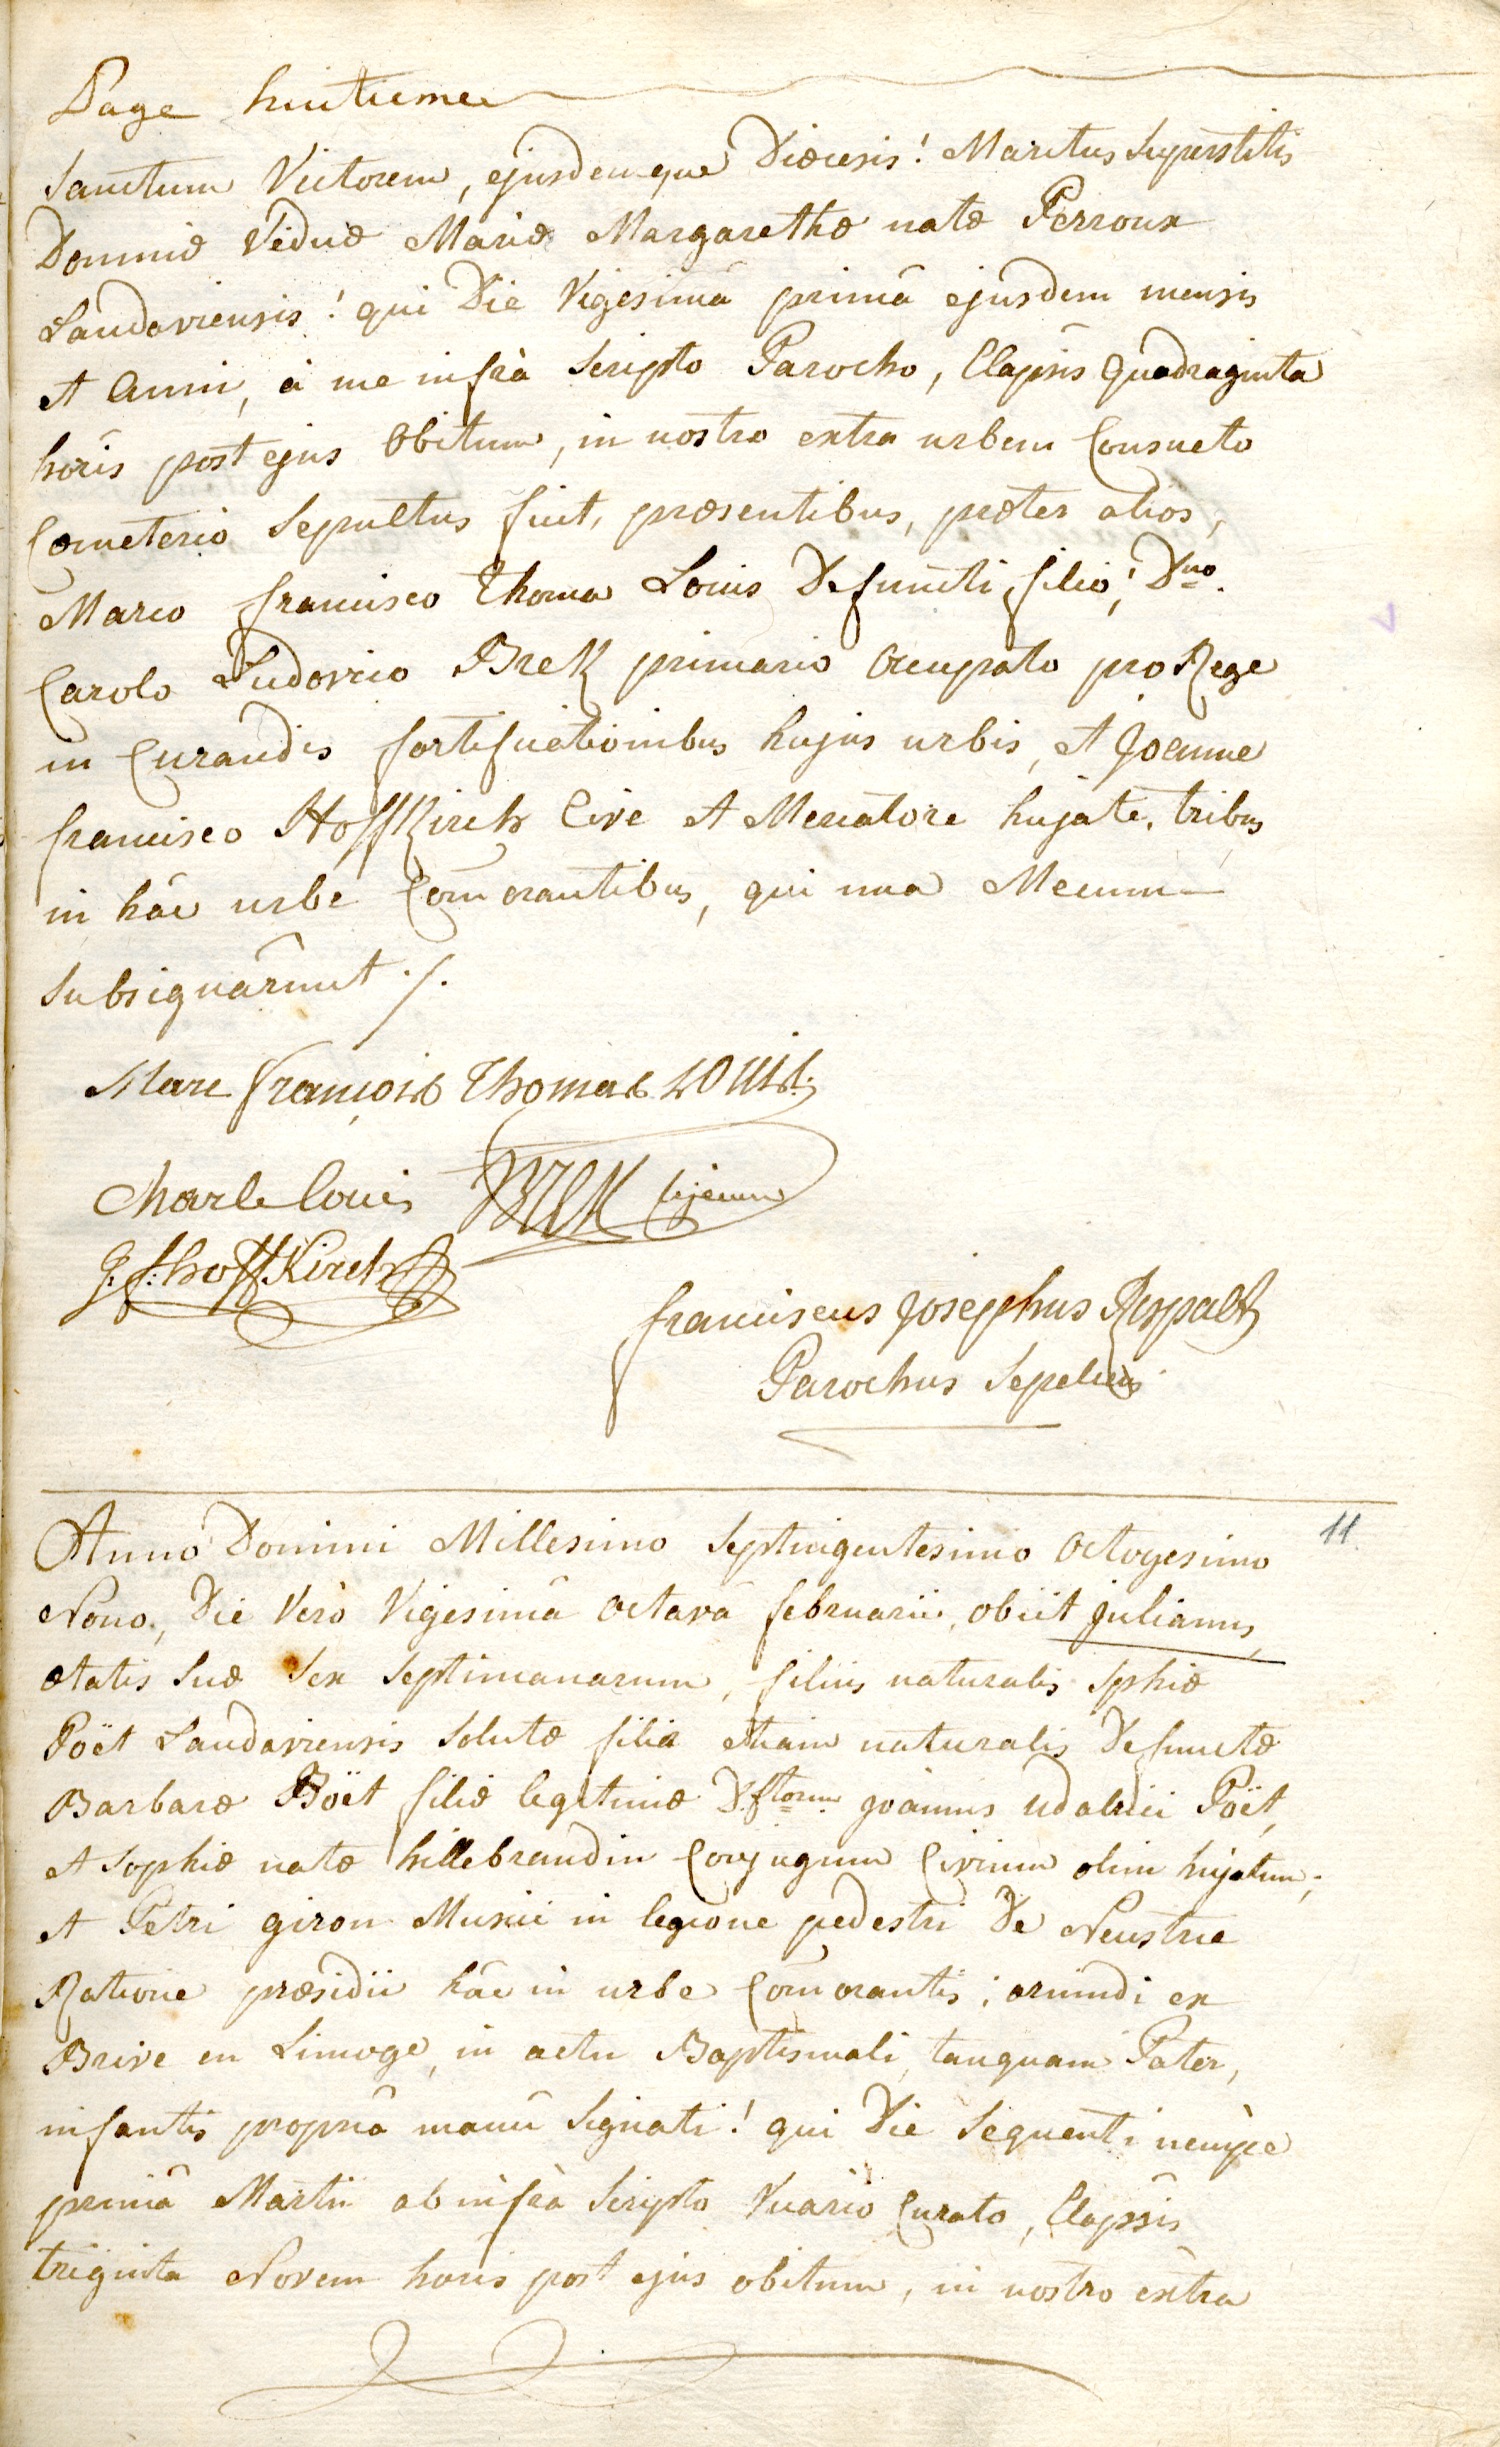 Page huitieme
Sanctum Victorem, ejusdemque Diœcesis! Maritus Superstitis
Dominæ Viduæ Mariæ Margarethæ natæ Perroux
Landaviensis! qui Die Vigesimâ primâ ejusdem mensis
et Anni, à me infrà Scripto Parocho, Elapsis Quadraginta
horis post ejus Obitum, in nostro extra urbem Consueto
Cœmeterio Sepultus fuit, præsentibus, præter alios,
Marco francisco Thoma Louis Defuncti filio! Dno.
Carolo Ludovico Brek primario Occupato pro Rege
in Curandis fortificationibus hujus urbis, et Joanne
francisco Hoffkirch Cive et Mercatore hujate, tribus
in hâc urbe Com̃orantibus, qui una Mecum
Subsignârunt ./.
Marc François Thomas LOUIS.
Charle Louis BREK
J. f: hoffKirch
franciscus Josephus Rospalt
Parochus Sepeliens
11.
Anno Domini Millesimo Septingentesimo Octogesimo
Nono, Die Verò Vigesimâ Octavâ februarii, obiit Julianus,
ætatis Suæ Sex Septimanarum, filius naturalis Sphiæ
Poët Landaviensis Solutæ filia etiam naturalis Defunctæ
Barbaræ Böët filiæ legitimæ D.ftorum Joannis Udalrici Poët,
et Sophiæ natæ hillebrandin Conjugum Civium olim hujatum;
et Petri giron Musici in legione pedestri De Neustrie
Ratione præsidii hâc in urbe Com̃orantis; oriundi ex
Brive en Limoge, in actu Baptismali, tanquam Pater,
infantis propriâ manû Signati! qui Die Sequenti nempe
primâ Martii ab infrà Scripto Vicario Curato, Elapsis
triginta Novem horis post ejus obitum, in nostro extra